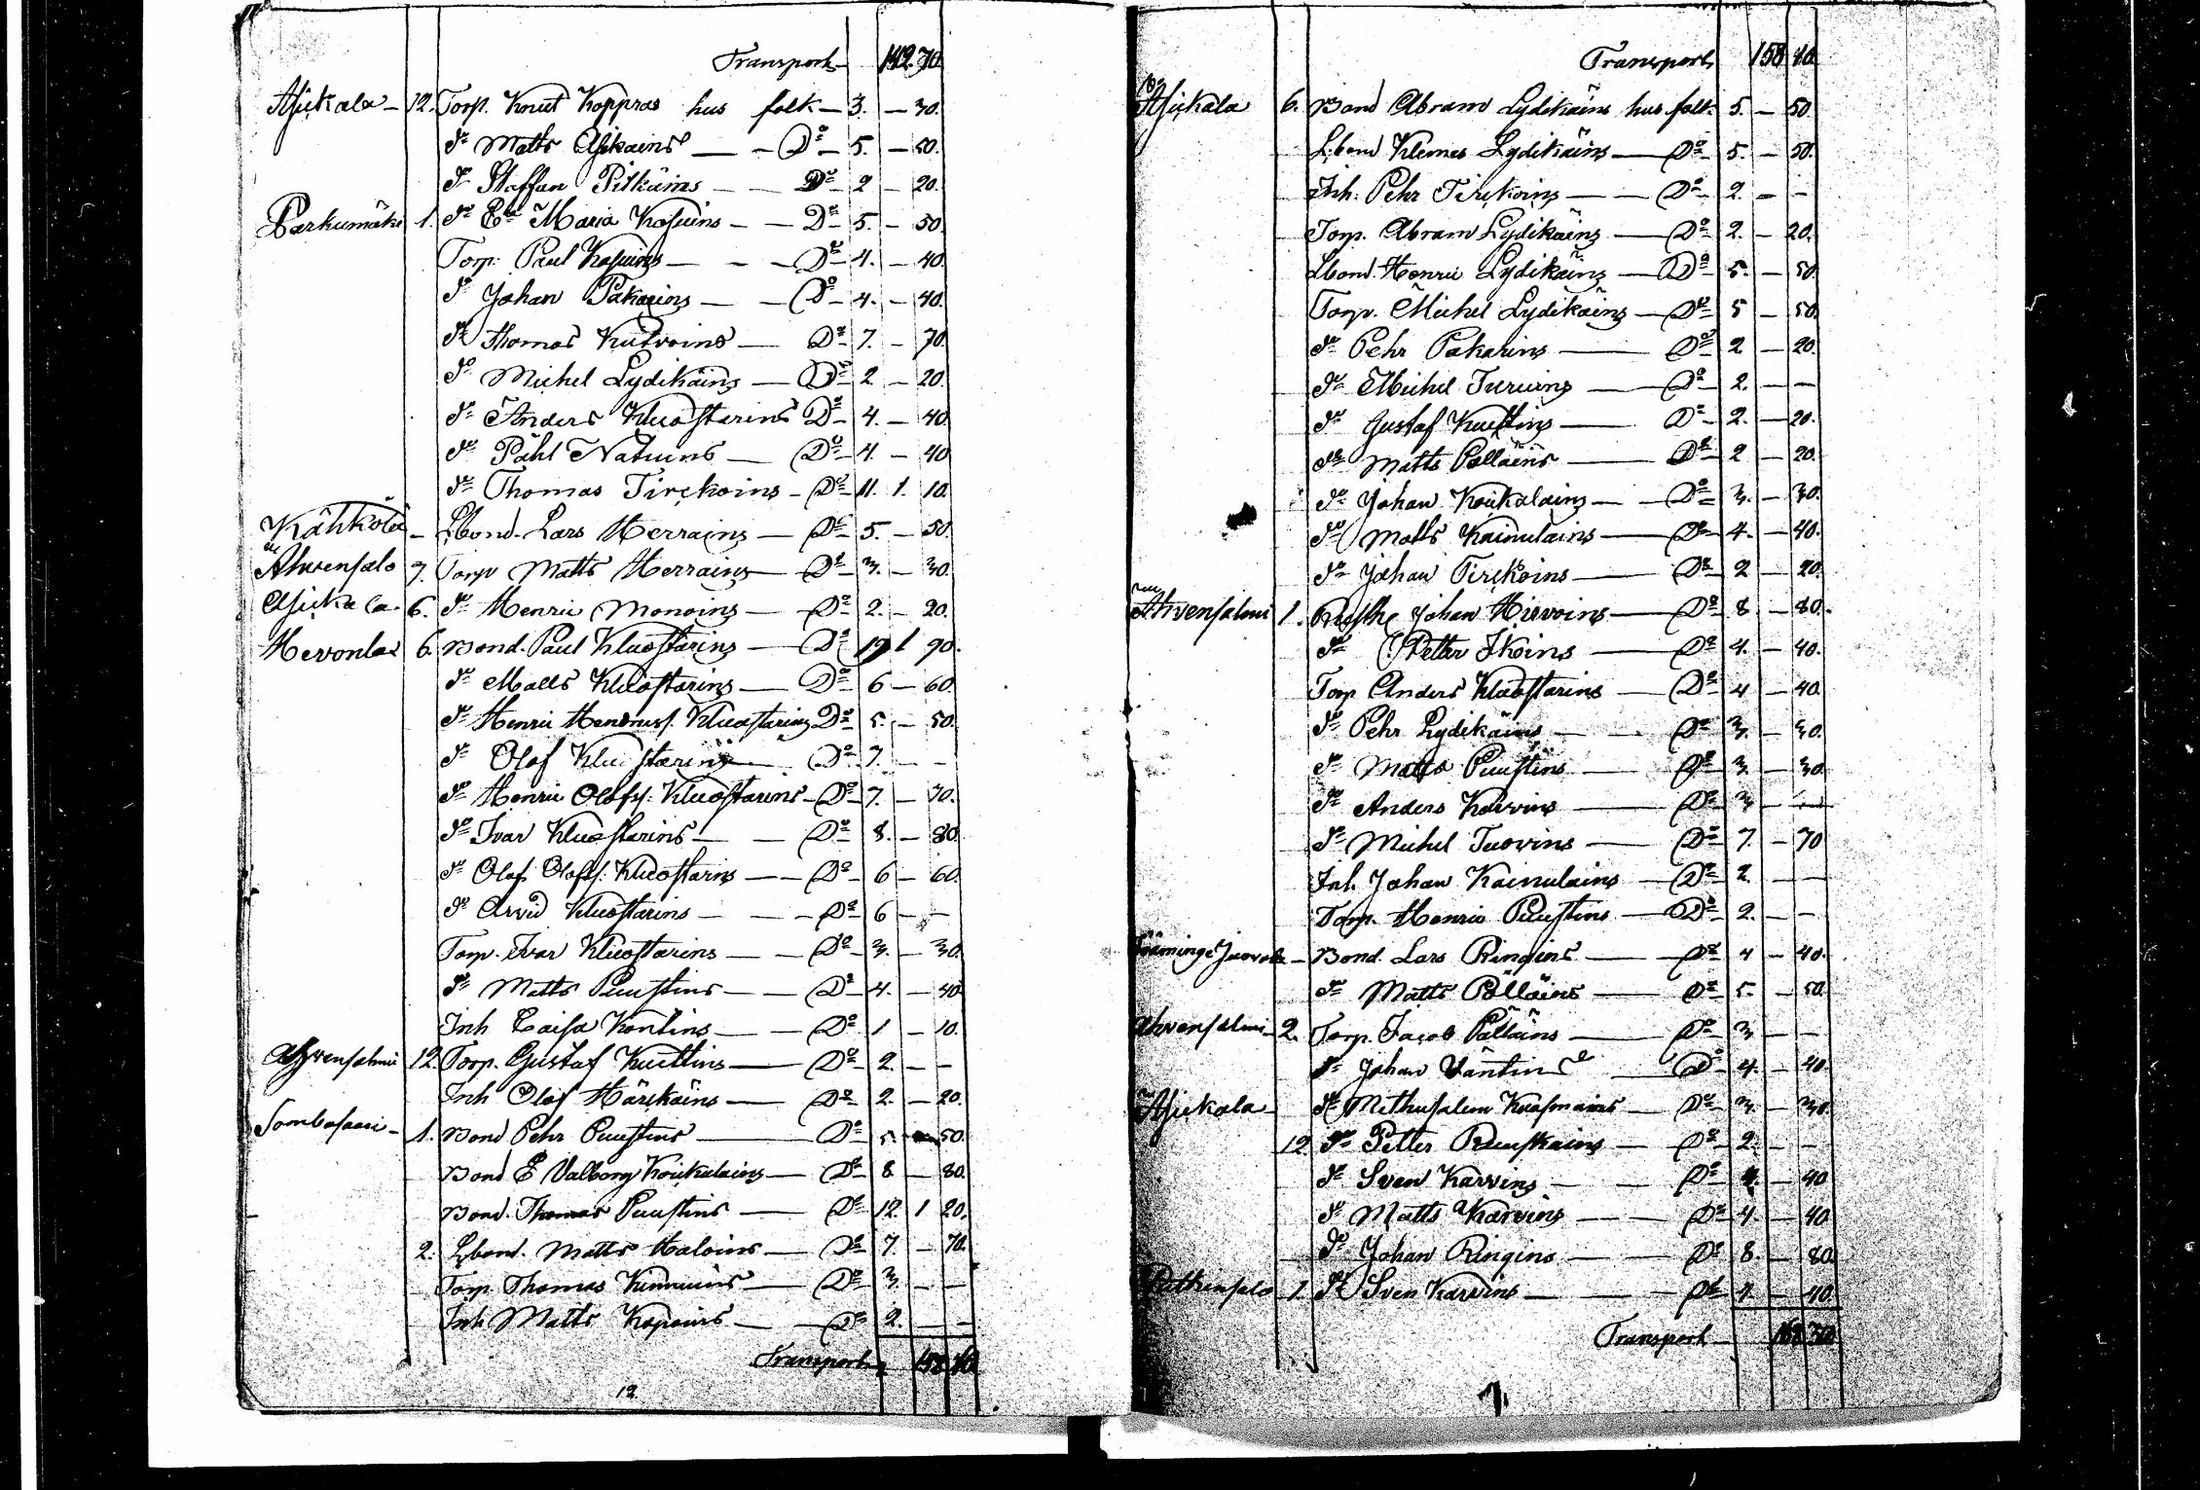 Transport 142. 70.
Asickala 12. Torp. Knut Koppras hus folk 3. — 30.
Dº Matts Asikains Dº 5. — 50.
Dº Staffan Pitkäins Dº 2 — 20.
Parkumäki 1. Dº Maria Kosuins Dº 5. — 50.
Torp. Paul Kosuins Dº 4. — 40.
Dº Johan Pakarins Dº 4. — 40.
Dº Thomas Kutvoins Dº 7. — 70.
Dº Michel Lydikäins Dº 2 — 20.
Dº Anders Kluostarins Dº 4. — 40.
Dº Påhl Natuins Dº 4. — 40
Dº Thomas Tirckoins Dº 11. 1. 10.
Kähkölä — Lbond. Lars Herrains Dº 5. — 50.
Ahvensalo 7. Torp Matts Herrains Dº 3. — 30.
Asickala 6. Dº Henric Monoins Dº 2. — 20.
Hevonla 6. Bond. Paul Kluostarins Dº 19 1 90.
Dº Matts Kluostarins Dº 6 — 60.
Dº Henric Hendricss. Kluostarins Dº 5. — 50.
Dº Olof Kluostarins Dº 7. — —
Dº Henric Olofss. Kluostarins Dº 7. — 70.
Dº Ivar Kluostarins Dº 8. — 80.
Dº Olof Olofss. Kluostarins Dº 6 — 60.
Dº Arvid Kluostarins Dº 6 — —
Torp. Ivar Kluostarins Dº 3. — 30.
Dº Matts Puustins Dº 4. — 40
Inh Caisa Kontins Dº 1 — 10.
Ahvensalmi 12. Torp. Gustaf Kuittins Dº 2. — —
Inh Olof Härckäins Dº 2. — 20.
Sombasaari 1. Bond Pehr Puustins Dº 5. — 50.
Bond E Valborg Koukalains Dº 8 — 80.
Bond. Thomas Puustins Dº 12. 1 20.
2. Lbond. Matts Haloins Dº 7 — 70.
Torp. Thomas Kinnuins Dº 3. — —
Inh Matts Kopoins Dº 2. — —
Transport 158 10
12.
Transport 158 10.
Asickala 6. Bond Abram Lydikäins hus folk 5. — 50.
Lbond Klemes Lydikäins Dº 5. — 50.
Inh. Pehr Tirckoins Dº 2. — —
Torp. Abram Lydikäins Dº 2. — 20.
Lbond. Henric Lydikäins Dº 5. — 50.
Torp. Michel Lydikäins Dº 5 — 50.
Dº Pehr Pakarins Dº 2 — 20.
Dº Michel Turuins Dº 2. — —
Dº Gustaf Kuittins Dº 2. — 20.
Dº Matts Pölläins Dº 2 — 20.
Dº Johan Koukalains Dº 3. — 30.
Dº Matts Kainulains Dº 4. — 40.
Dº Johan Tirckoins Dº 2 — 20.
Ahvensalmi 1. Johan Hirvoins Dº 8 — 80.
Dº Petter Ikoins Dº 4. — 40.
Torp Anders Kluostarins Dº 4 — 40.
Dº Pehr Lydikäins Dº 3. — 30.
Dº Matts Puustins Dº 3. — 30.
Dº Anders Karvins Dº 3 — —
Dº Michel Tuovins Dº 7. — 70
Inh. Johan Kainulains Dº 2. — —
Torp. Henric Puustins Dº 2. — —
Bond. Lars Ringins Dº 4 — 40.
Dº Matts Pölläins Dº 5. — 50.
Ahvensalmi 2. Torp. Jacob Pölläins Dº 3 — —
Dº Johan Väntins Dº 4. — 40.
Asickala Dº Methusalem Kuosmains Dº 3. — 30.
12 Dº Petter Ruuskains Dº 2. — —
Dº Sven Karvins Dº 4. — 40
Dº Matts Karvins Dº 4. — 40
Dº Johan Ringins Dº 8. — 80.
1. Dº Sven Karvins Dº 4. — 40.
Transport